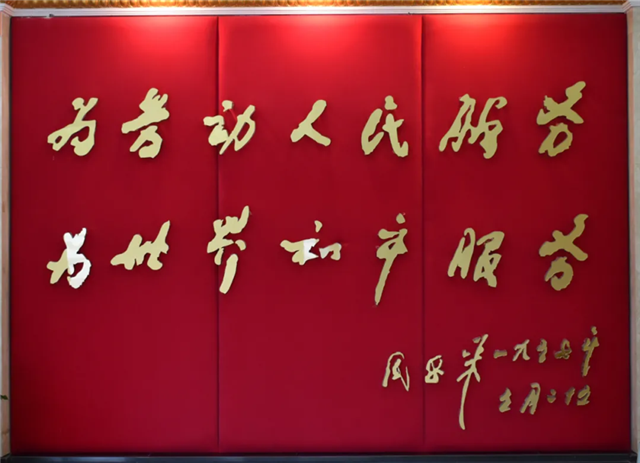 为劳动人民服务
为世界和平服务
周恩来 一九五七年
月二